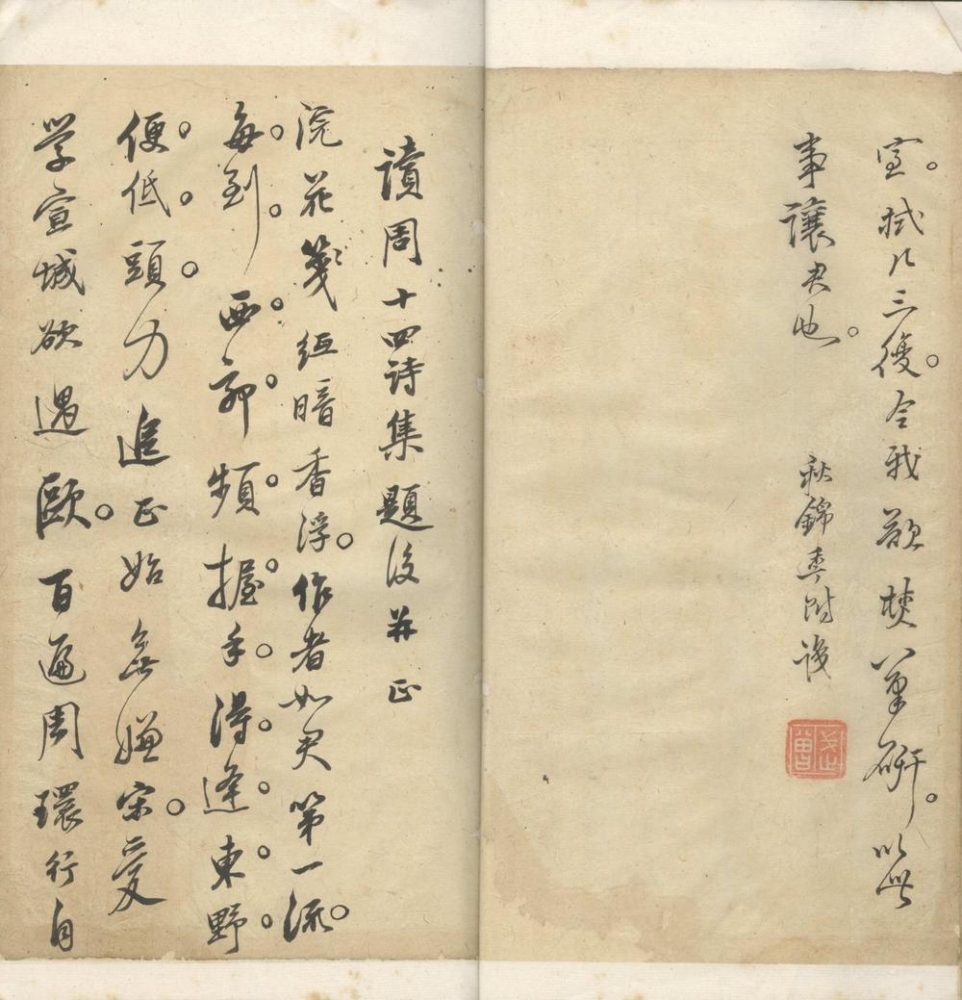 室。拭几三復。令我欲焚筆硏。以此
事讓君也。
秋錦附
讀周十四詩集題後并正
浣花箋紙暗香浮。作者如君第一流。
每到西郊頻握手。得逢東野
便低頭力追正始無嫌宋。愛
学宣城欲過歐。百遍周環行自